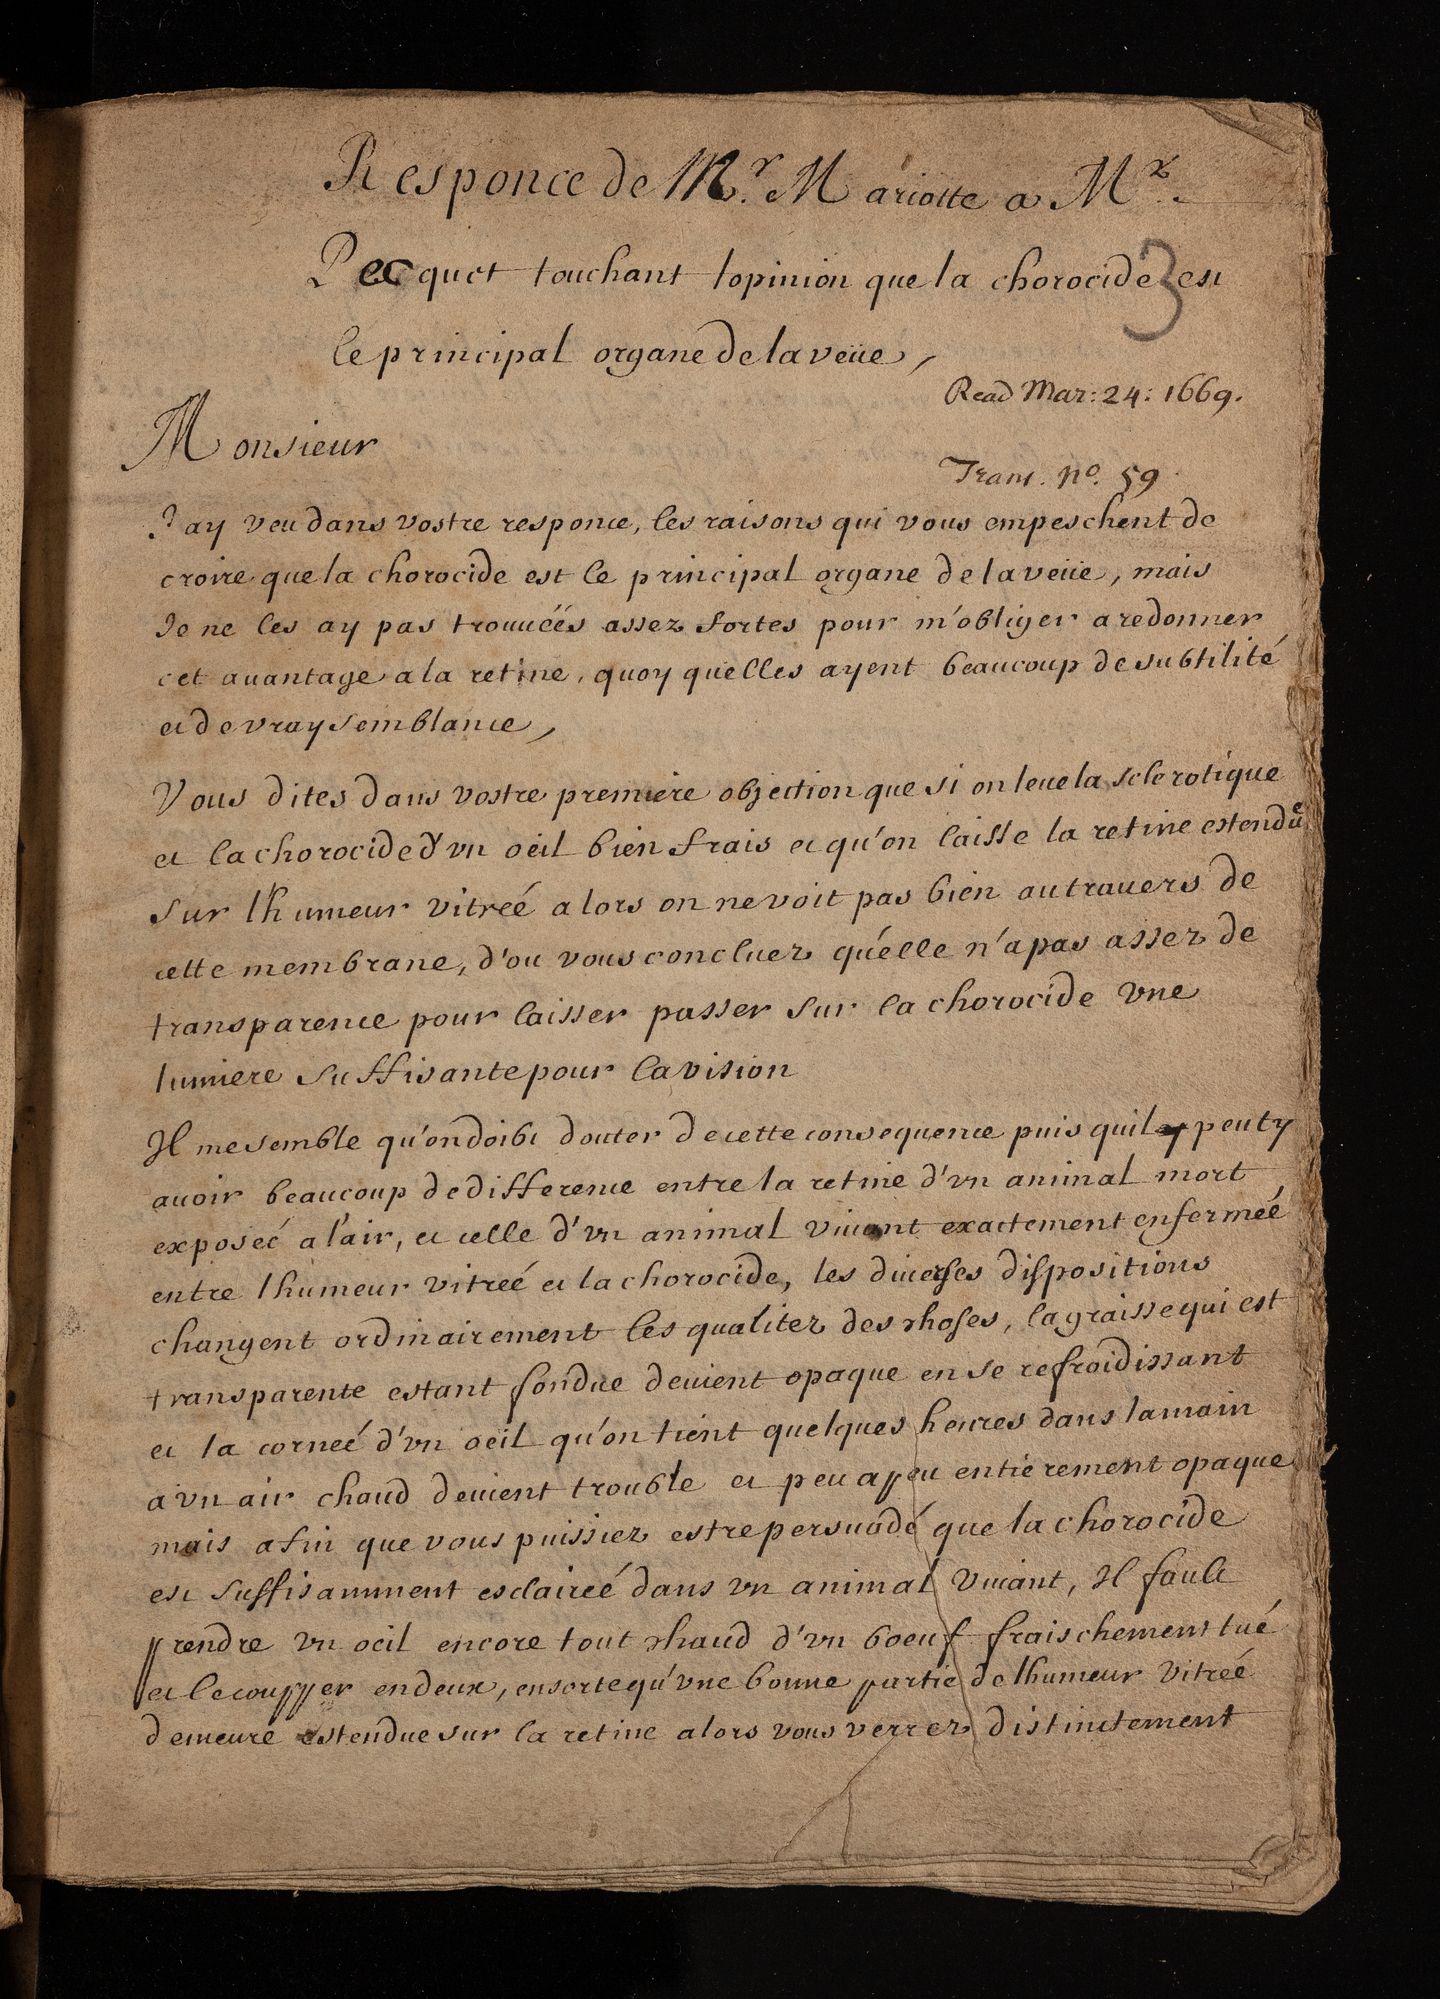 Responce de Mr. Mariotte a Mr.
Pecquet touchant lopinion que la chorocide est
3
le principal organe de la veüe,
Read Mar: 24: 1669.
Monsieur
Trans. No. 59
J'ay veu dans vostre responce, les raisons qui vous empeschent de
croire que la chorocide est le principal organe de la veüe, mais
Je ne les ay pas trouuéés assez fortes pour m'obliger a redonner
cet auantage a la retine, quoy quelles ayent beaucoup de subtilité
et de vray semblance,
Vous dites dans vostre premiere objection que si on leue la sclerotique
et la chorocide d'vn oeil bien frais et qu'on laisse la retine estenduë
sur lhumeur vitréé alors on ne voit pas bien au trauers de
cette membrane, d'ou vous concluez quélle n'a pas assez de
transparence pour laisser passer sur la chorocide vne
lumiere suffisante pour la vision
Il me semble qu'on doibt douter de cette consequence puis quil peut y
auoir beaucoup de difference entre la retine d'vn animal mort
exposéé a l'air, et celle d'vn animal viuant exactement enferméé
entre lhumeur vitréé et la chorocide, les diuerses dispositions
changent ordinairement les qualitez des choses, la graisse qui est
transparente estant fondue deuient opaque en se refroidissant
et la cornéé d'vn oeil qu'on tient quelques heures dans la main
a vn air chaud deuient trouble et peu a peu entierement opaque
mais afin que vous puissiez estre persuadé que la chorocide
est suffisamment esclairéé dans vn animal viuant, Il fault
prendre vn oeil encore tout chaud d'vn boeuf fraischement tué
et le coupper en deux, en sorte qu'vne bonne partie de lhumeur vitréé
demeure estendue sur la retine alors vous verrez distinctement